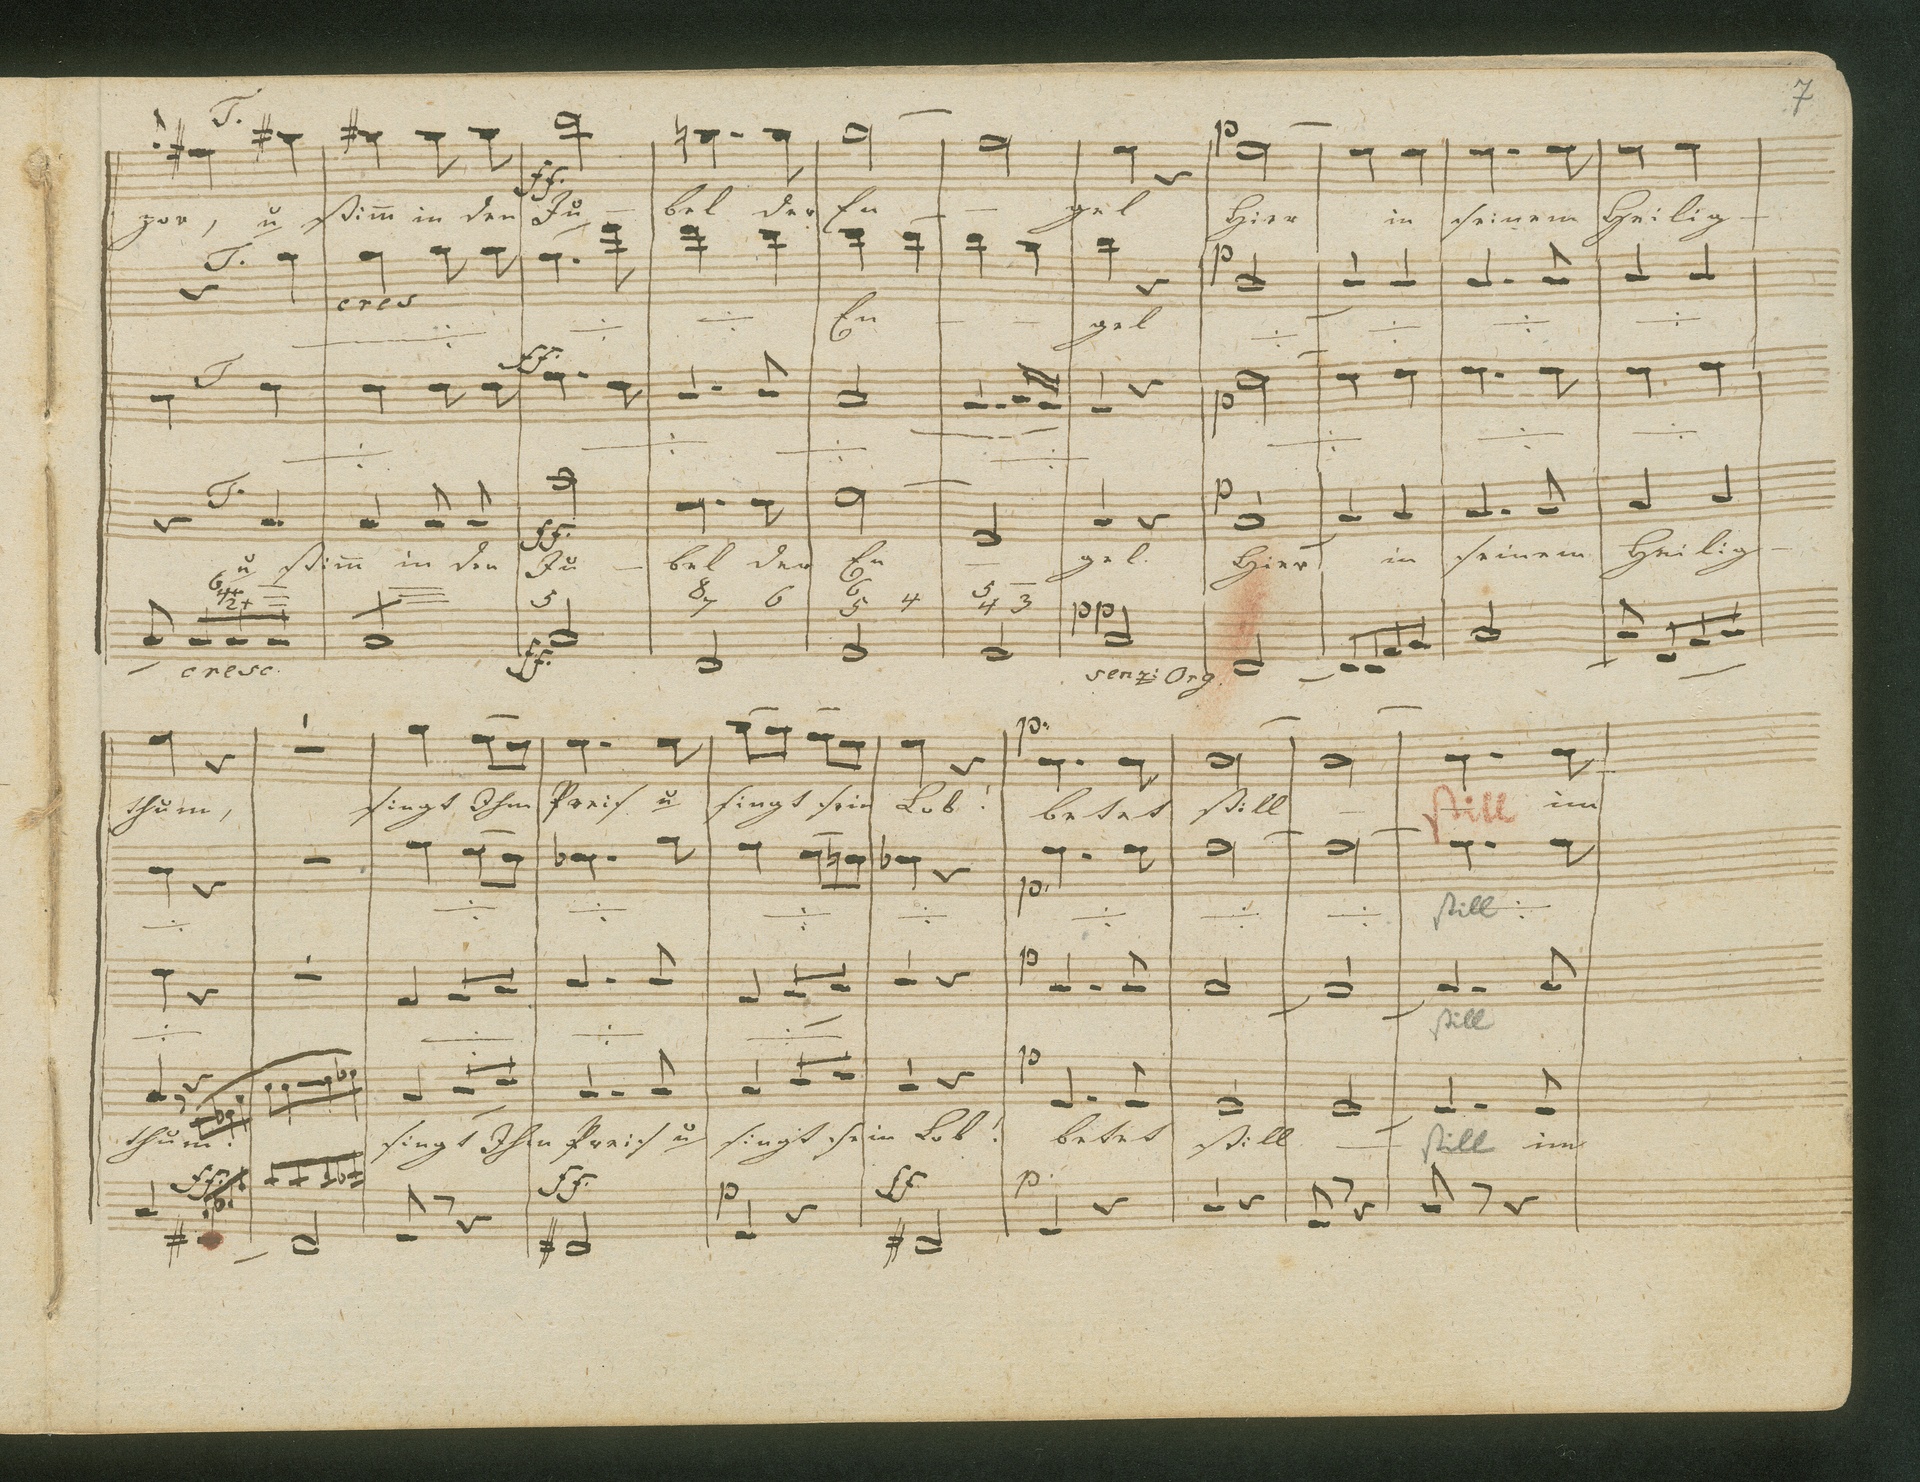 7
T.
ff.
p
por, u stim̄ in den Ju - bel der En - - gel Hier in seinem Heilig -
T.
cres
p
En - - gel
T
ff.
p
T.
ff.
p
u stim̄ in den Ju - bel der En - gel. Hier in seinem Heilig -
6 4+ 2+ 5 8 7 6 6 5 4 5 4 3 pp
cresc. ff. senz: Org.
p.
thum, singt Ihm Preis u singt sein Lob! betet still - still im
p.
still
p
still
p
thum! singt Ihm Preis u singt sein Lob! betet still - still im
ff. ff. p ff p.